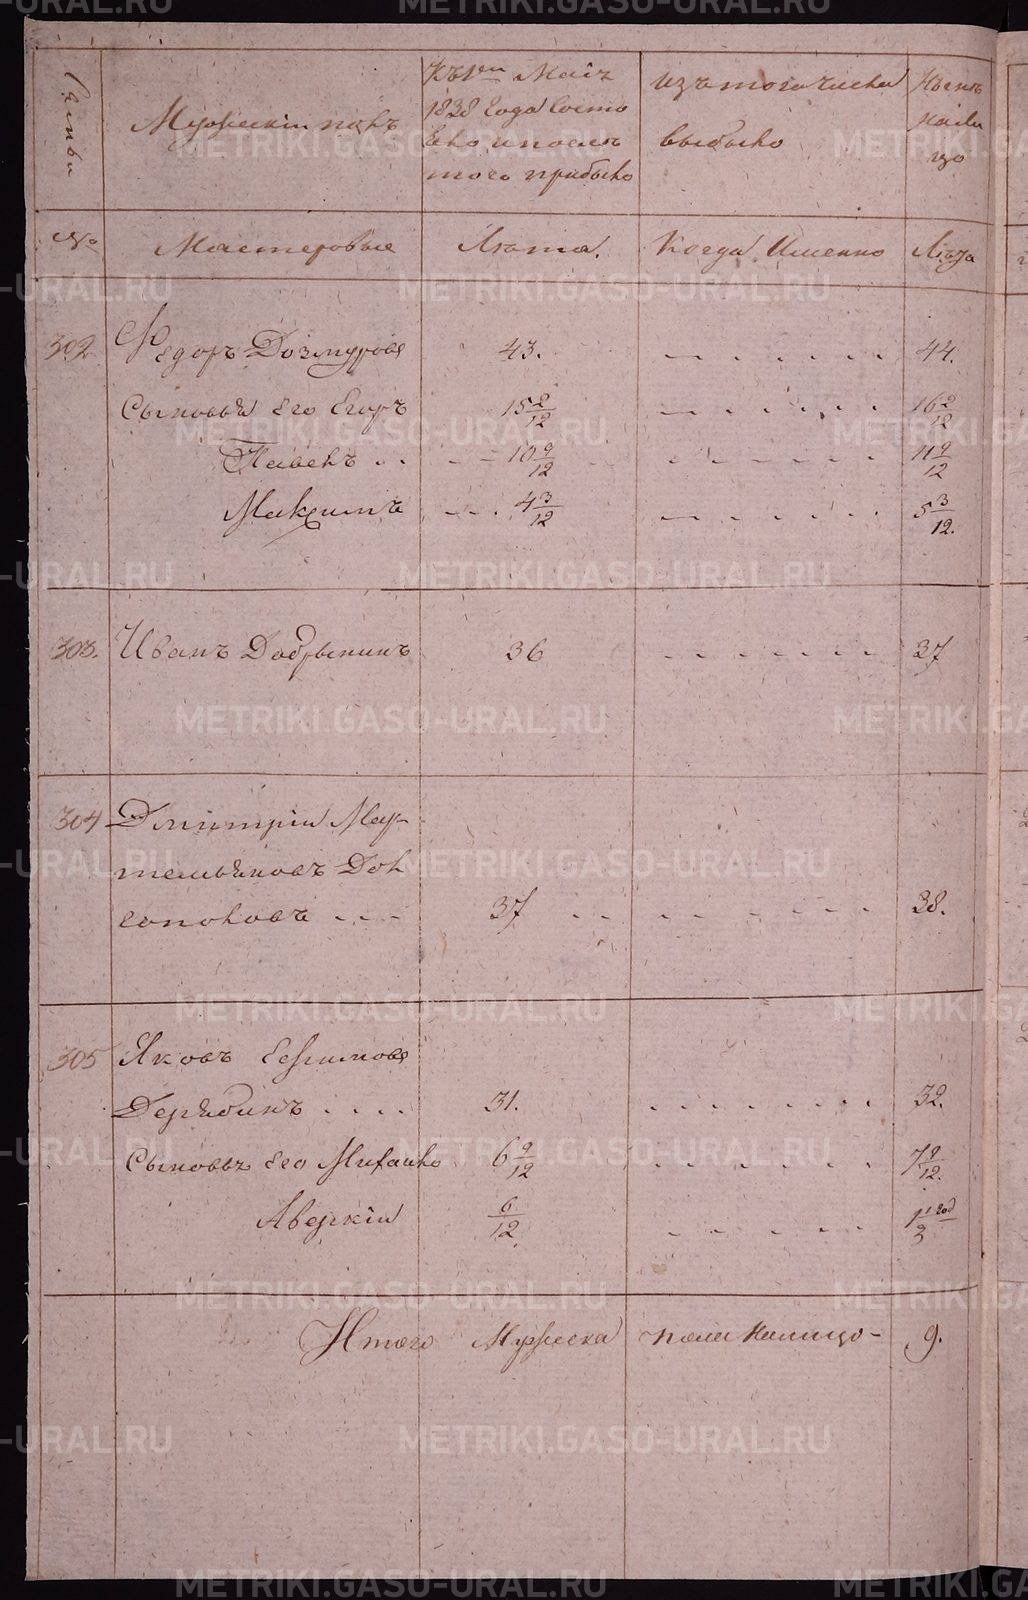 Семьи
Мужескій полъ
Къ 1му Маія
1838 Года Состо
яло и послѣ
того прибыло
изъ того числа
выбыло
Нынѣ
нали
цо
№
Мастеровые
Лѣта.
Когда Именно
Лѣта
302 Федоръ Дозмуровъ 43. 44.
Сыновья Его Егоръ 15 9/12 16 9/12
Павелъ 10 9/12 11 9/12
Максимъ 4 3/12 5 3/12.
303. Иванъ Добрынинъ 36 37
304 Дмитрій Мау-
тельяновъ Дол
гополовъ 37 38.
305 Яковъ Ефимовъ
Дерябинъ 31. 32.
Сыновья Его Михайло 6 9/12 7 9/12.
Аверкій 6/12 1 1/2 год
Итого Мужеска пола Налицо - 9.
METRIKI.GASO-URAL.RU